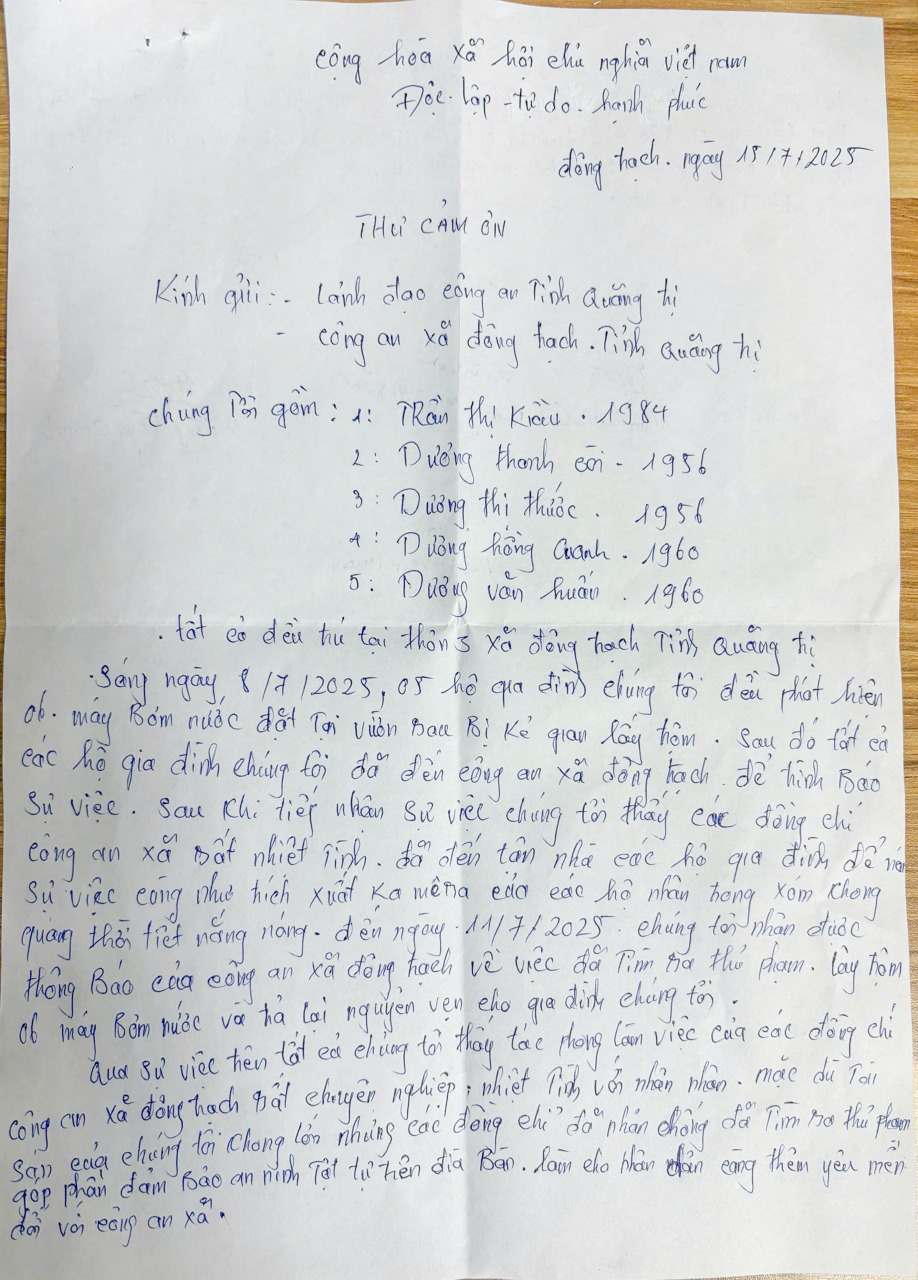 cộng hòa xã hội chủ nghĩa việt nam
Độc lập - tự do. hạnh phúc
đông trạch. ngày 15/7/2025
THƯ CẢM ƠN
Kính gửi: - Lảnh đạo công an Tỉnh Quãng trị
- công an xã đông trạch. Tỉnh Quãng trị
chúng Tôi gồm: 1: TRần thị Kiều. 1984
2: Dương thanh còi - 1956
3: Dương thị thước. 1956
4: Dương hồng quanh. 1960
5: Dương văn huấn. 1960
. tất cả đều trú tại thôn 3 xã đông trạch Tỉnh Quãng trị
Sáng ngày 8/7/2025, 05 hộ gia đình chúng tôi đều phát hiện
06. máy Bơm nước đặt Tại vườn sau Bị Kẻ gian lấy trộm. sau đó tất cả
các hộ gia đình chúng tôi đã đến công an xã đông trạch. để trình Báo
sự việc. sau khi tiếp nhận sự việc chúng tôi thấy các đồng chí
công an xã Rất nhiệt Tình. đã đến tận nhà các hộ gia đình để
sự việc cũng như trích xuất Ka mêra của các hộ nhân trong xóm không
quảng thời tiết nắng nóng. đến ngày 11/7/2025. chúng tôi nhận được
thông Báo của công an xã đông trạch về việc đã Tìm ra thủ phạm. lấy trộm
06 máy Bơm nước và trả lại nguyên vẹn cho gia đình chúng tôi.
Qua sự việc trên tất cả chúng tôi thấy tác phong làm việc của các đồng chí
công an xã đông trạch Rất chuyên nghiệp; nhiệt Tình với nhân nhân. mặc dù Tài
sản của chúng tôi không lớn nhưng các đồng chí đã nhanh chóng đã Tìm ra thủ phạm
góp phần đảm Bảo an ninh Tật tự trên địa Bàn. làm cho nhân dân càng thêm yêu mến
đối với công an xã.